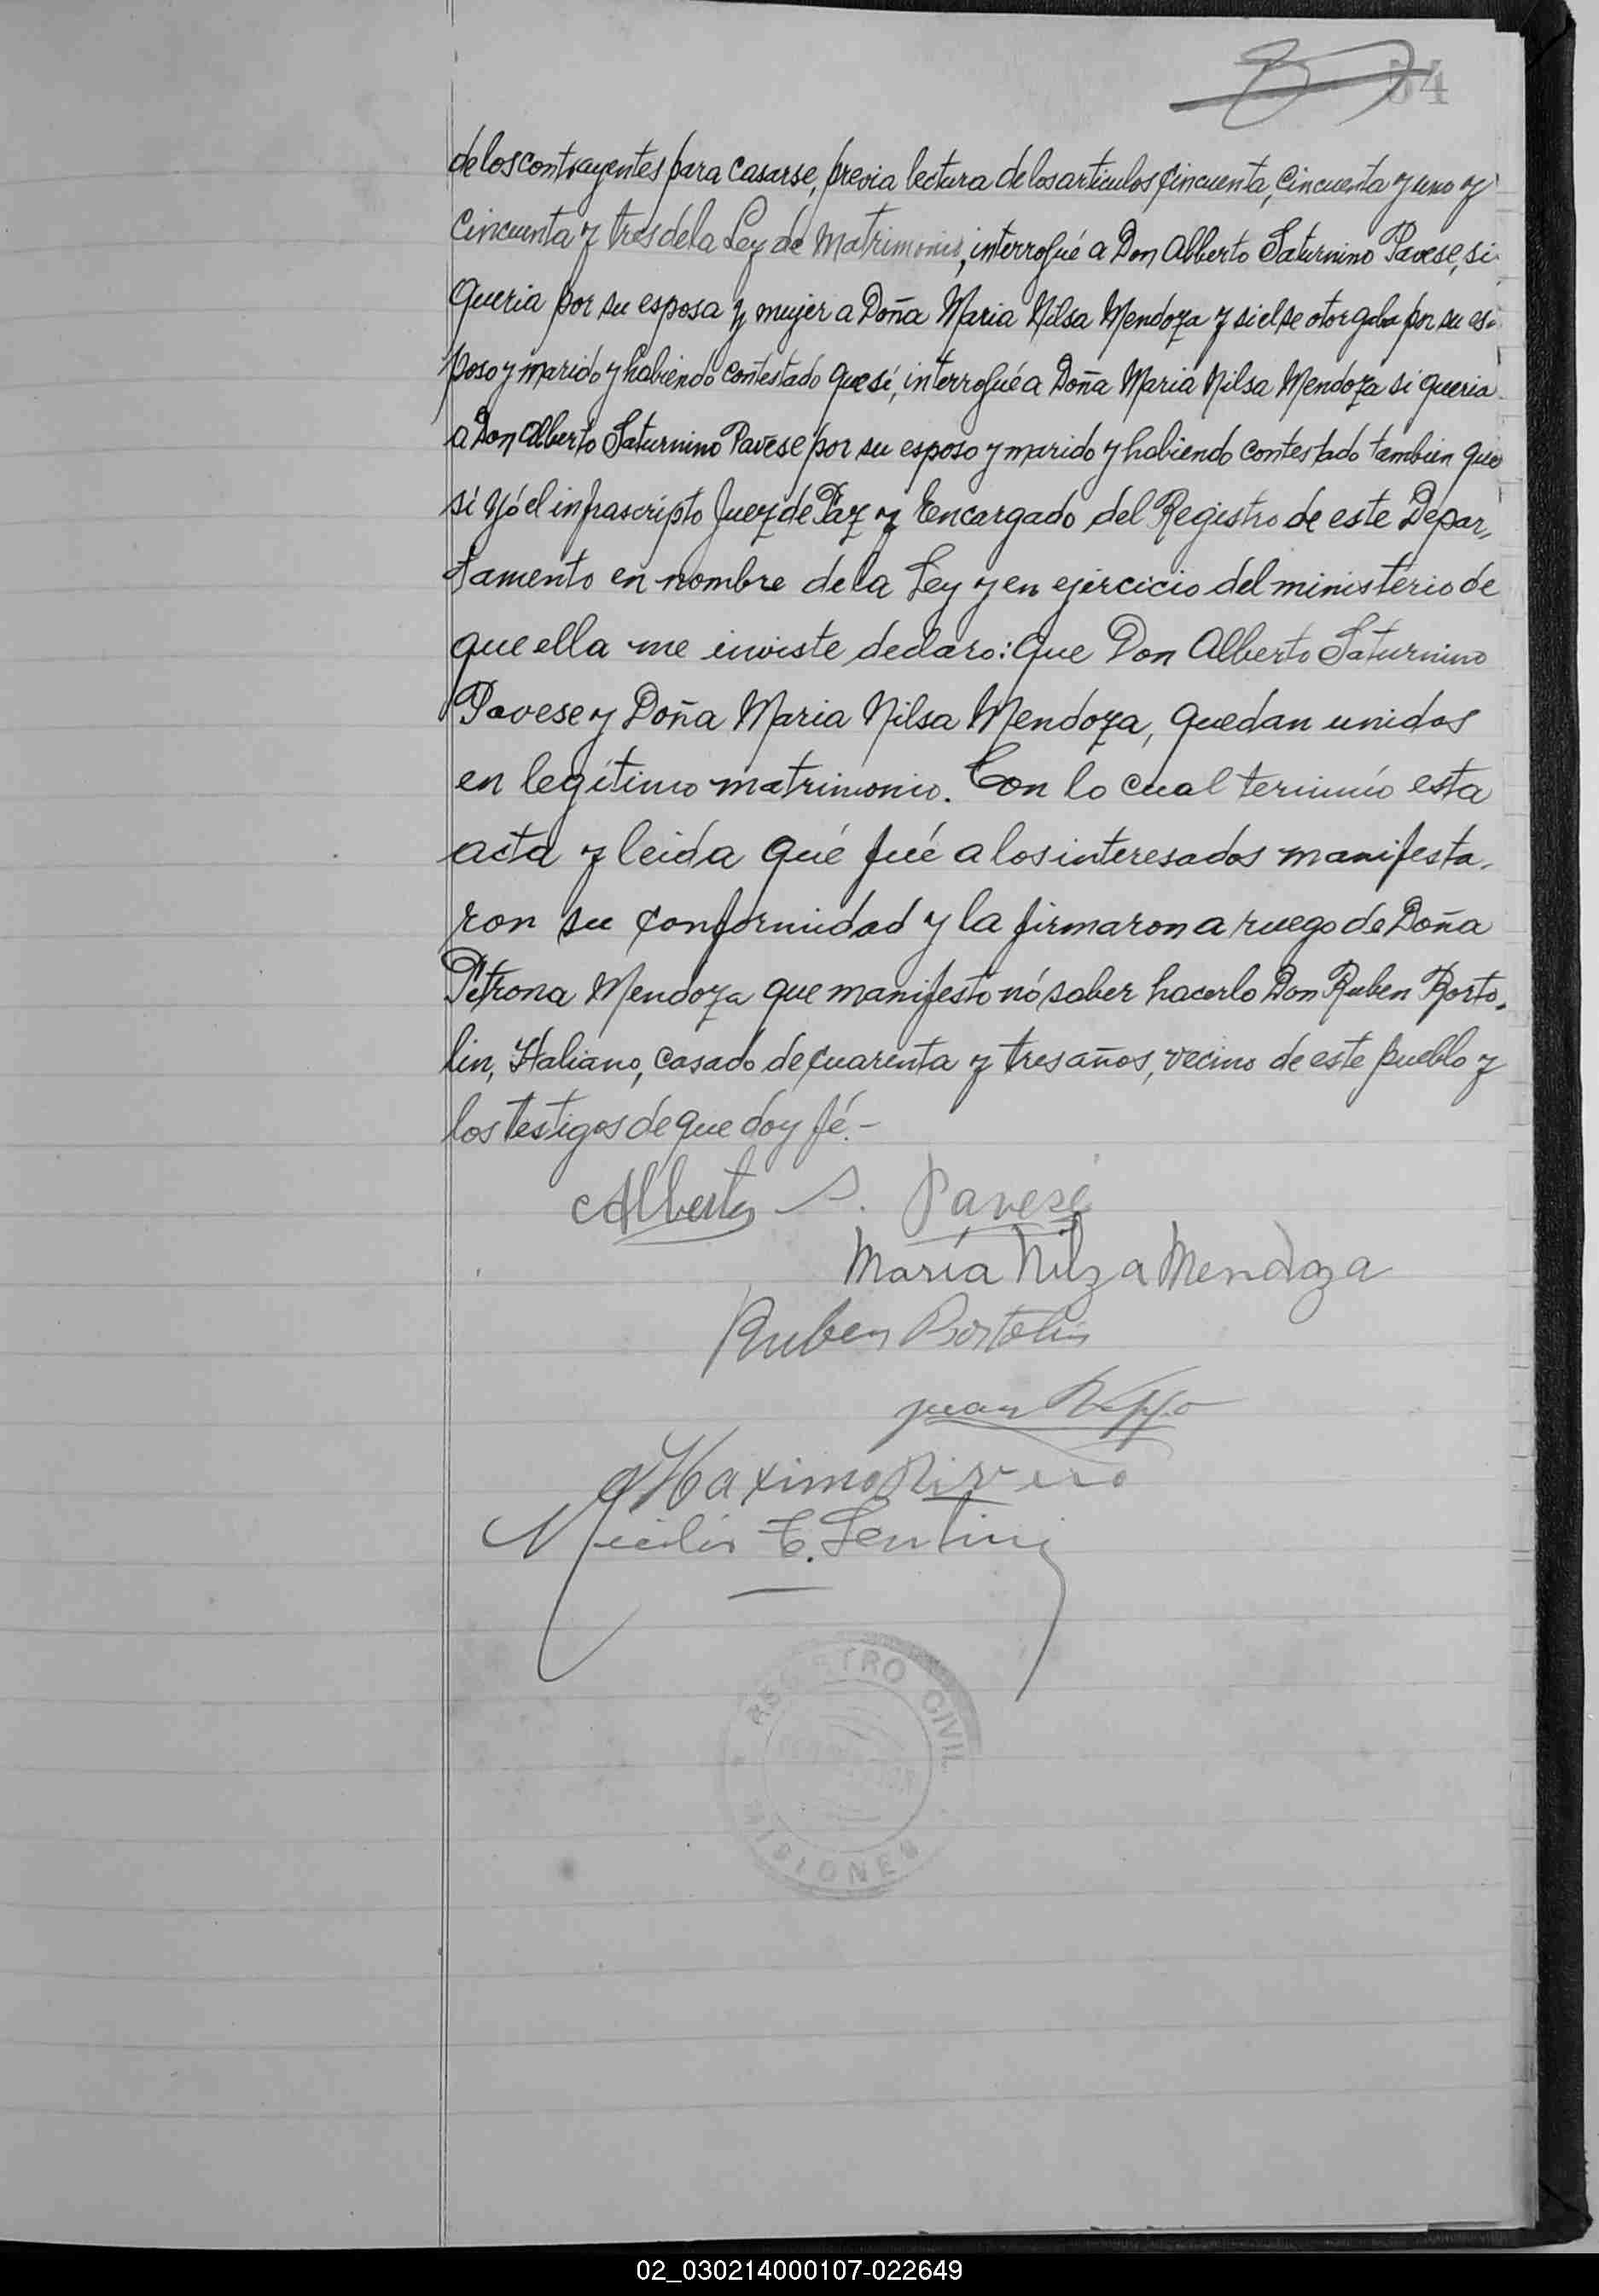 54
de los contrayentes para casarse, previa lectura de los articulos cincuenta, cincuenta y uno y
cincuenta y tres de la Ley de Matrimonio, interrogué a Don Alberto Saturnino Pavese, si
queria por su esposa y mujer a Doña Maria Nilsa Mendoza y si el se otorgaba por su es-
poso y marido y habiendo contestado que sí, interrogué a Doña Maria Nilsa Mendoza si queria
a Don Alberto Saturnino Pavese por su esposo y marido y habiendo contestado tambien que
sí yó el infrascripto Juez de Paz y Encargado del Registro de este Depar-
tamento en nombre de la Ley y en ejercicio del ministerio de
que ella me inviste declaro: Que Don Alberto Saturnino
Pavese y Doña Maria Nilsa Mendoza, quedan unidos
en legítimo matrimonio. Con lo cual terminó esta
acta y leida qué fué a los interesados manifesta-
ron su conformidad y la firmaron a ruego de Doña
Petrona Mendoza que manifestó nó saber hacerlo Don Ruben Borto-
lin, Italiano, casado de cuarenta y tres años, vecino de este pueblo y
los testigos de que doy fé.-
Alberto S. Pavese
María Nilza Mendoza
Ruben Bortolin
Juan
Maximo Rivero
REGISTRO CIVIL
MISIONES
02_030214000107-022649